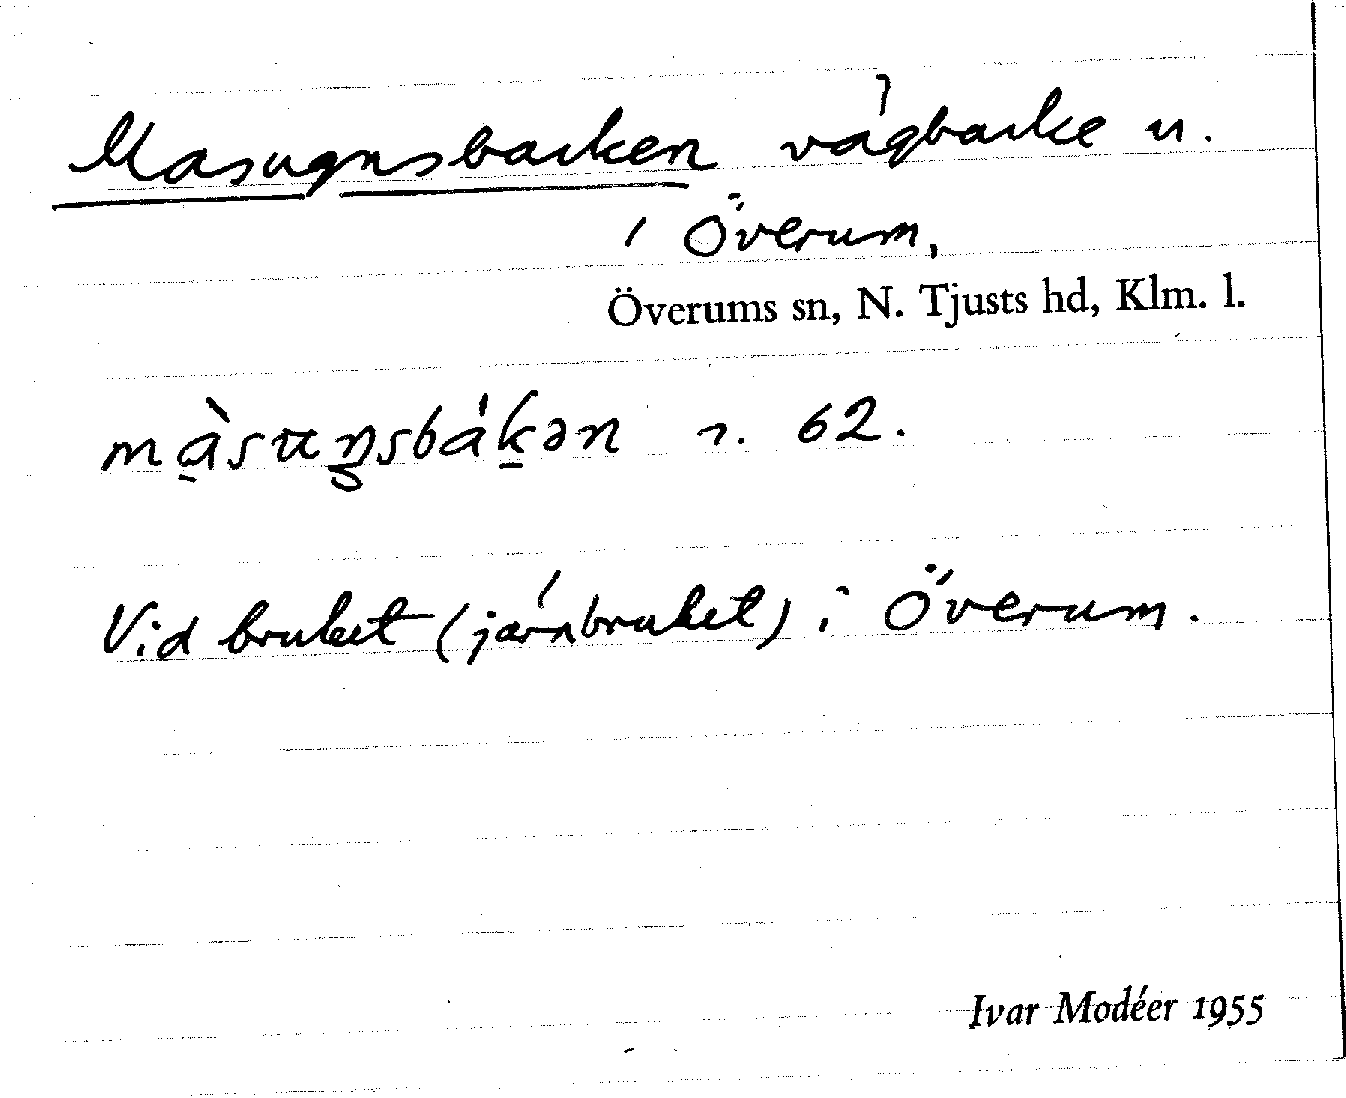 Masugnsbacken vägbacke n.
i Överum,
Överums sn, N. Tjusts hd, Klm. l.
62.
Vid bruket (järnbruket) i Överum.
Ivar Modéer 1955